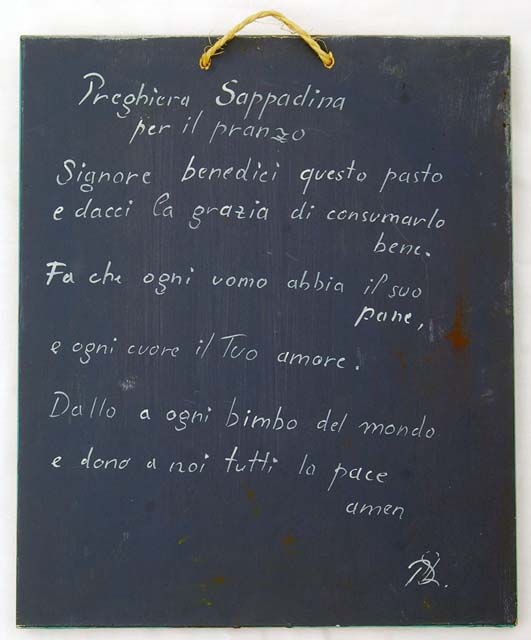 Preghiera Sappadina
per il pranzo
Signore benedici questo pasto
e dacci la grazia di consumarlo
bene.
Fa che ogni uomo abbia il suo
pane,
e ogni cuore il Tuo amore.
Dallo a ogni bimbo del mondo
e dona a noi tutti la pace
amen